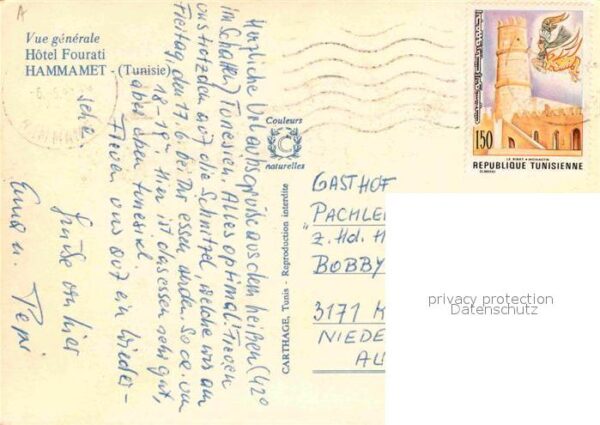 Vue générale
Hôtel Fourati
HAMMAMET - (Tunisie)
Herzliche Urlaubsgrüße aus dem heißen (42°
im Schatten) Tunesien. Alles optimal. Freuen
uns trotzdem auf die Schnitzel, welche wir am
Freitag, den 17.6. bei Dir essen werden. So ca. um
18-19h. Hier ist das essen sehr gut,
aber eben tunesisch.
Freuen uns auf ein Wieder-
sehen.
Grüße von hier
u. Pepi
Couleurs
C
naturelles
CARTHAGE, Tunis - Reproduction interdite
150
LE RIBAT - MONASTIR
REPUBLIQUE TUNISIENNE
GASTHOF
PACHLE
Z. Hd. H
BOBBY
3171 K
NIEDE
AU
privacy protection
Datenschutz
A